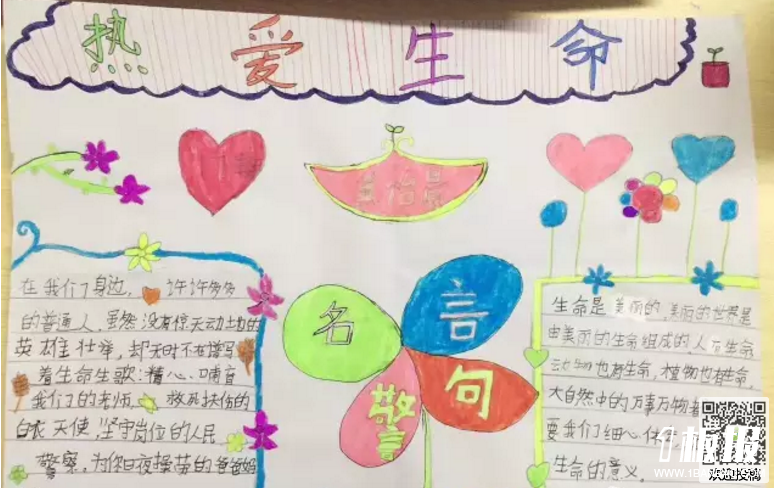 热爱生命
名言
警句
在我们身边, 许许多多
的普通人,虽然没有惊天动地的
英雄壮举,却无时不在谱写
着生命生歌:精心哺育
我们的老师, 救死扶伤的
白衣天使,坚守岗位的人民
警察,为你日夜操劳的爸爸妈
生命是美丽的,美丽的世界是
由美丽的生命组成的,人有生命
动物也有生命,植物也有生命,
大自然中的万事万物
要我们细心
生命的意义。
欢迎投稿